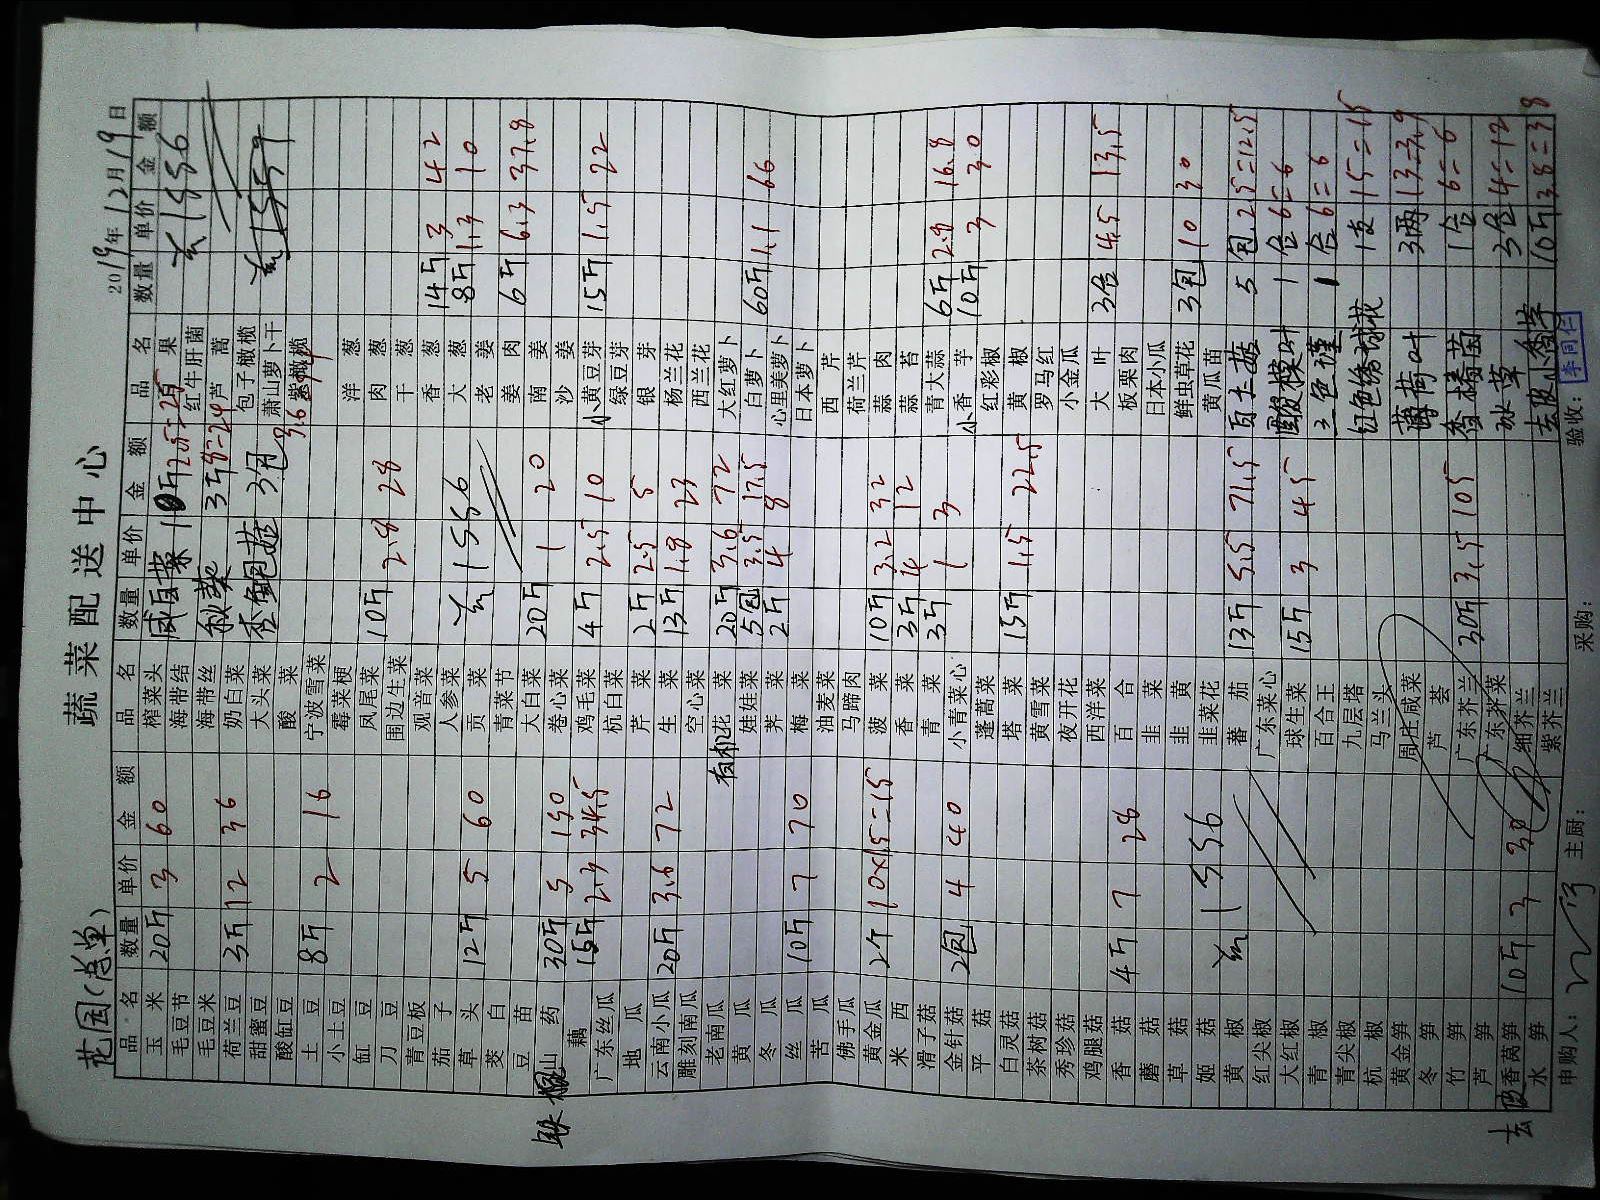 蔬菜配送中心
花园(总单)
2019年12月19日
品名 数量 单价 金额 品名 数量 单价 金额 品名 数量 单价 金额
玉米 20斤 3 60 榨菜头 咸豆菜
毛豆节 海带结 红牛肝菌
毛豆米 海带丝 秋葵 芦蒿
荷兰豆 3斤 12 36 奶白菜 包子橄榄
甜蜜豆 大头菜 萧山萝卜干
酸缸豆 酸菜 紫橄榄
土豆 8斤 2 16 宁波雪菜
小土豆 霉菜梗 洋葱
缸豆 凤尾菜 10斤 2.8 28 肉葱
刀豆 围边生菜 干葱
青豆板 观音菜 香葱 14斤 3 42
茄子 人参菜 大葱 8斤 1.3 10
草头 12斤 5 60 贡菜 老姜
茭白 青菜节 姜肉 6斤 6.3 37.8
豆苗 大白菜 20斤 1 20 南姜
山药 30斤 5 150 卷心菜 沙姜
藕 15斤 2.3 34.5 鸡毛菜 4斤 2.5 10 小黄豆芽 15斤 1.5 22
广东丝瓜 杭白菜 绿豆芽
地瓜 芹菜 2斤 2.5 5 银芽
云南小瓜 20斤 3.6 72 生菜 13斤 1.8 23 杨兰花
雕刻南瓜 空心菜 西兰花
老南瓜 有机花菜 20斤 3.6 72 大红萝卜
黄瓜 娃娃菜 5包 3.5 17.5 白萝卜 60斤 1.1 66
冬瓜 荠菜 2斤 4 8 心里美萝卜
丝瓜 10斤 7 70 梅菜 日本萝卜
苦瓜 油麦菜 西芹
佛手瓜 马蹄肉 荷兰芹
黄金瓜 2个 10×1.5=15 菠菜 10斤 3.2 32 蒜肉
米西 香菜 3斤 4 12 蒜苔
滑子菇 青菜 3斤 1 3 青大蒜 6斤 2.8 16.8
金针菇 2包 4 40 小青菜心 小香芋 10斤 3 30
平菇 蓬蒿菜 红彩椒
白灵菇 塔菜 15斤 1.5 22.5 黄椒
茶树菇 黄雪菜 罗马红
秀珍菇 夜开花 小金瓜
鸡腿菇 西洋菜 大叶 3合 4.5 13.5
香菇 4斤 7 28 百合 板栗肉
蘑菇 韭菜 日本小瓜
草菇 韭黄 鲜虫草花 3包 10 30
姬菇 韭菜花 黄瓜苗
黄椒 共1556 蕃茄 13斤 5.5 71.5 白玉菇 5包 2.5=12.5
红尖椒 广东菜心 酸模叶 1合 6=6
大红椒 球生菜 15斤 3 45 三色瑾 1合 6=6
青椒 百合王
青尖椒 九层塔 红色绣球花 1支 15=15
杭椒 马兰头
黄金笋 周庄咸菜 薄荷叶 3两 13=3.9
冬笋 芦荟
竹笋 广东芥兰 30斤 3.5 105 香椿苗 1合 6=6
芦笋 广东芥菜
去皮香莴笋 10斤 3 30 细芥兰 冰草 3合 4=12
水笋 紫芥兰 去皮小香芋 10斤 3.8=38
申购人: 主厨: 采购: 验收: 李同仁